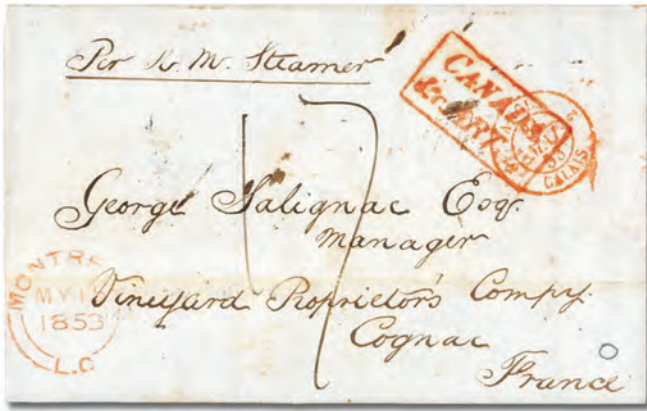 Per R. M. Steamer
CANADA
&c ART
CALAIS
George Salignac Esq.
Manager
Vineyard Proprietor's Compy.
Cognac
France
MONTRE
MY 1
1853
L.C
17